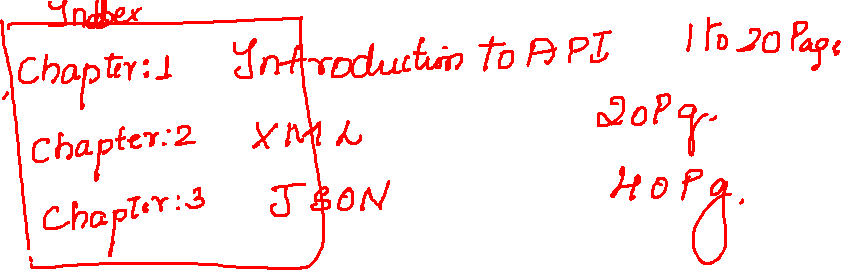 Index
Chapter:1 Introduction to API 1 to 20 Page
Chapter:2 XML 20Pg.
Chapter:3 JSON 40Pg.